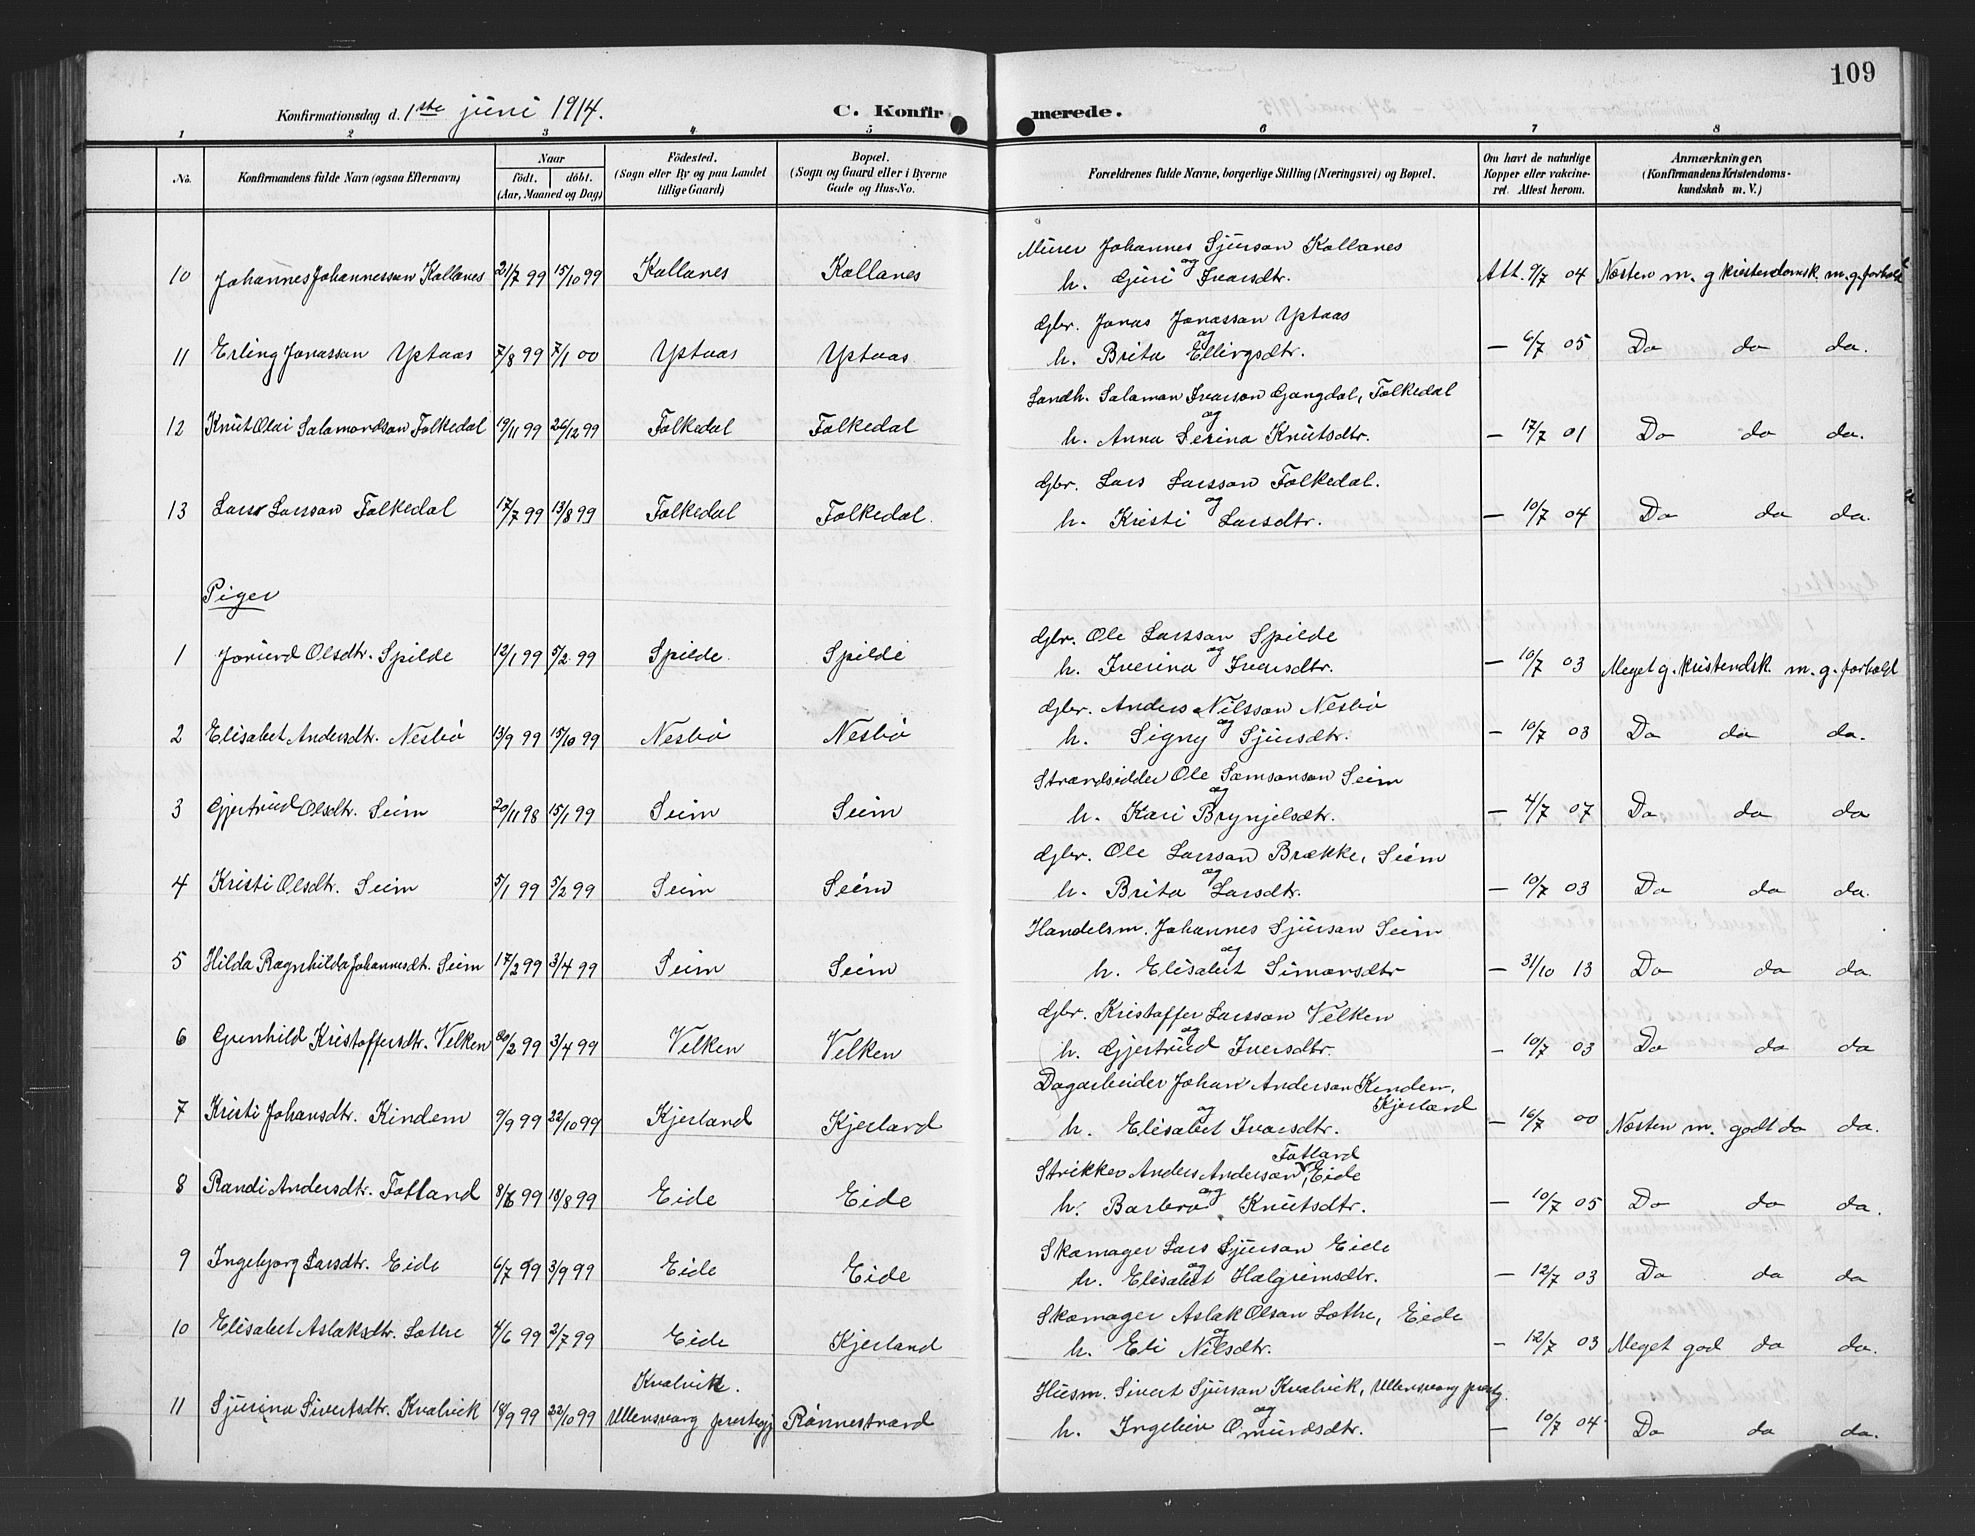 109
Konfirmationsdag d. 1ste juni 1914. C. Konfirmerede.
1 2 3 4 5 6 7 8
No. Konfirmandens fulde Navn (ogsaa Efternavn). Naar födt. döbt. (Aar, Maaned og Dag) Födested. (Sogn eller By og paa Landet tillige Gaard) Bopæl. (Sogn og Gaard eller i Byerne Gade og Hus-No. Forældrenes fulde Navne, borgerlige Stilling (Næringsvei) og Bopæl. Om havt de naturlige Kopper eller vakcineret. Attest herom. Anmærkninger, (Konfirmandens Kristendomskundskab m. V.)
Murer Johannes Sjurson Kollanes
10 Johannes Johannesson Kollanes 21/7 99 15/10 99 Kollanes Kollanes og h. Guri Ivarsdtr. Att. 9/7 04 Næsten m. g kristendomsk. m. g. forhold
Gbr. Jonas Jonasson Ystaas
11 Erling Jonasson Ystaas 7/8 99 7/1 00 Ystaas Ystaas og h. Brita Ellingsdtr. — 6/7 05 Do do do.
Landh. Salamon Ivarson Gangdal, Folkedal
12 Knut Olai Salamonsson Folkedal 19/11 99 26/12 99 Folkedal Folkedal og h. Anna Serina Knutsdtr. — 17/7 01 Do do do.
Gbr. Lars Larsson Folkedal.
13 Lars Larsson Folkedal 17/7 99 13/8 99 Folkedal Folkedal. og h. Kristi Larsdtr. — 10/7 04 Do do do.
Piger
Gbr. Ole Larsson Spilde
1 Jorund Olsdtr. Spilde 12/1 99 5/2 99 Spilde Spilde og h. Iverina Ivarsdtr. — 10/7 03 Meget g. kristendsk. m. g. forhold
Gbr. Anders Nilsson Nesbø
2 Elisabet Andersdtr. Nesbø 13/9 99 15/10 99 Nesbø Nesbø og h. Signy Sjursdtr. — 10/7 03 Do do do.
Strandsidder Ole Samsonson Seim
3 Gjertrud Olsdtr. Seim 20/11 98 15/1 99 Seim Seim og h. Kari Brynjelsdtr. — 4/7 07 Do do do
Gbr. Ole Larsson Brække, Seim
4 Kristi Olsdtr. Seim 5/1 99 5/2 99 Seim Seim og h. Brita Larsdtr. — 10/7 03 Do do do.
Handelsm. Johannes Sjurson Seim
5 Hilda Ragnhilda Johannesdt. Seim 17/2 99 3/4 99 Seim Seim og h. Elisabet Simonsdtr — 31/10 13 Do do do.
Gbr. Kristoffer Larsson Velken
6 Gunhild Kristoffersdtr. Velken 20/2 99 3/4 99 Velken Velken og h. Gjertrud Iversdtr. — 10/7 03 Do do do
Dagarbeider Johan Anderson Kindem, Kjerland
7 Kristi Johansdtr. Kindem 9/9 99 22/10 99 Kjerland Kjerland og h. Elisabet Ivarsdtr. — 16/7 00 Næsten m. godt do do.
Strikker Anders Anderson Fotland, Eide
8 Randi Andersdtr. Fotland 8/6 99 18/8 99 Eide Eide og h. Barbro Knutsdtr. — 10/7 05 Do do do.
Skomager Lars Sjurson Eide
9 Ingebjorg Larsdtr. Eide 6/7 99 3/9 99 Eide Eide og h. Elisabet Halgrimsdtr. — 12/7 03 Do do do
Skomager Aslak Olson Lothe, Eide
10 Elisabet Aslaksdtr. Lothe 4/6 99 2/7 99 Eide Kjerland og h. Eli Nilsdtr. — 12/7 03 Meget god do do.
Kvalvik. Husm. Sivert Sjurson Kvalvik, Ullensvang prestg.
11 Sjurina Sivertsdtr. Kvalvik 18/9 99 22/10 99 Ullensvang prestegj Rønnestrand og h. Ingebiør Omundsdtr. — 10/7 04 Do do do.